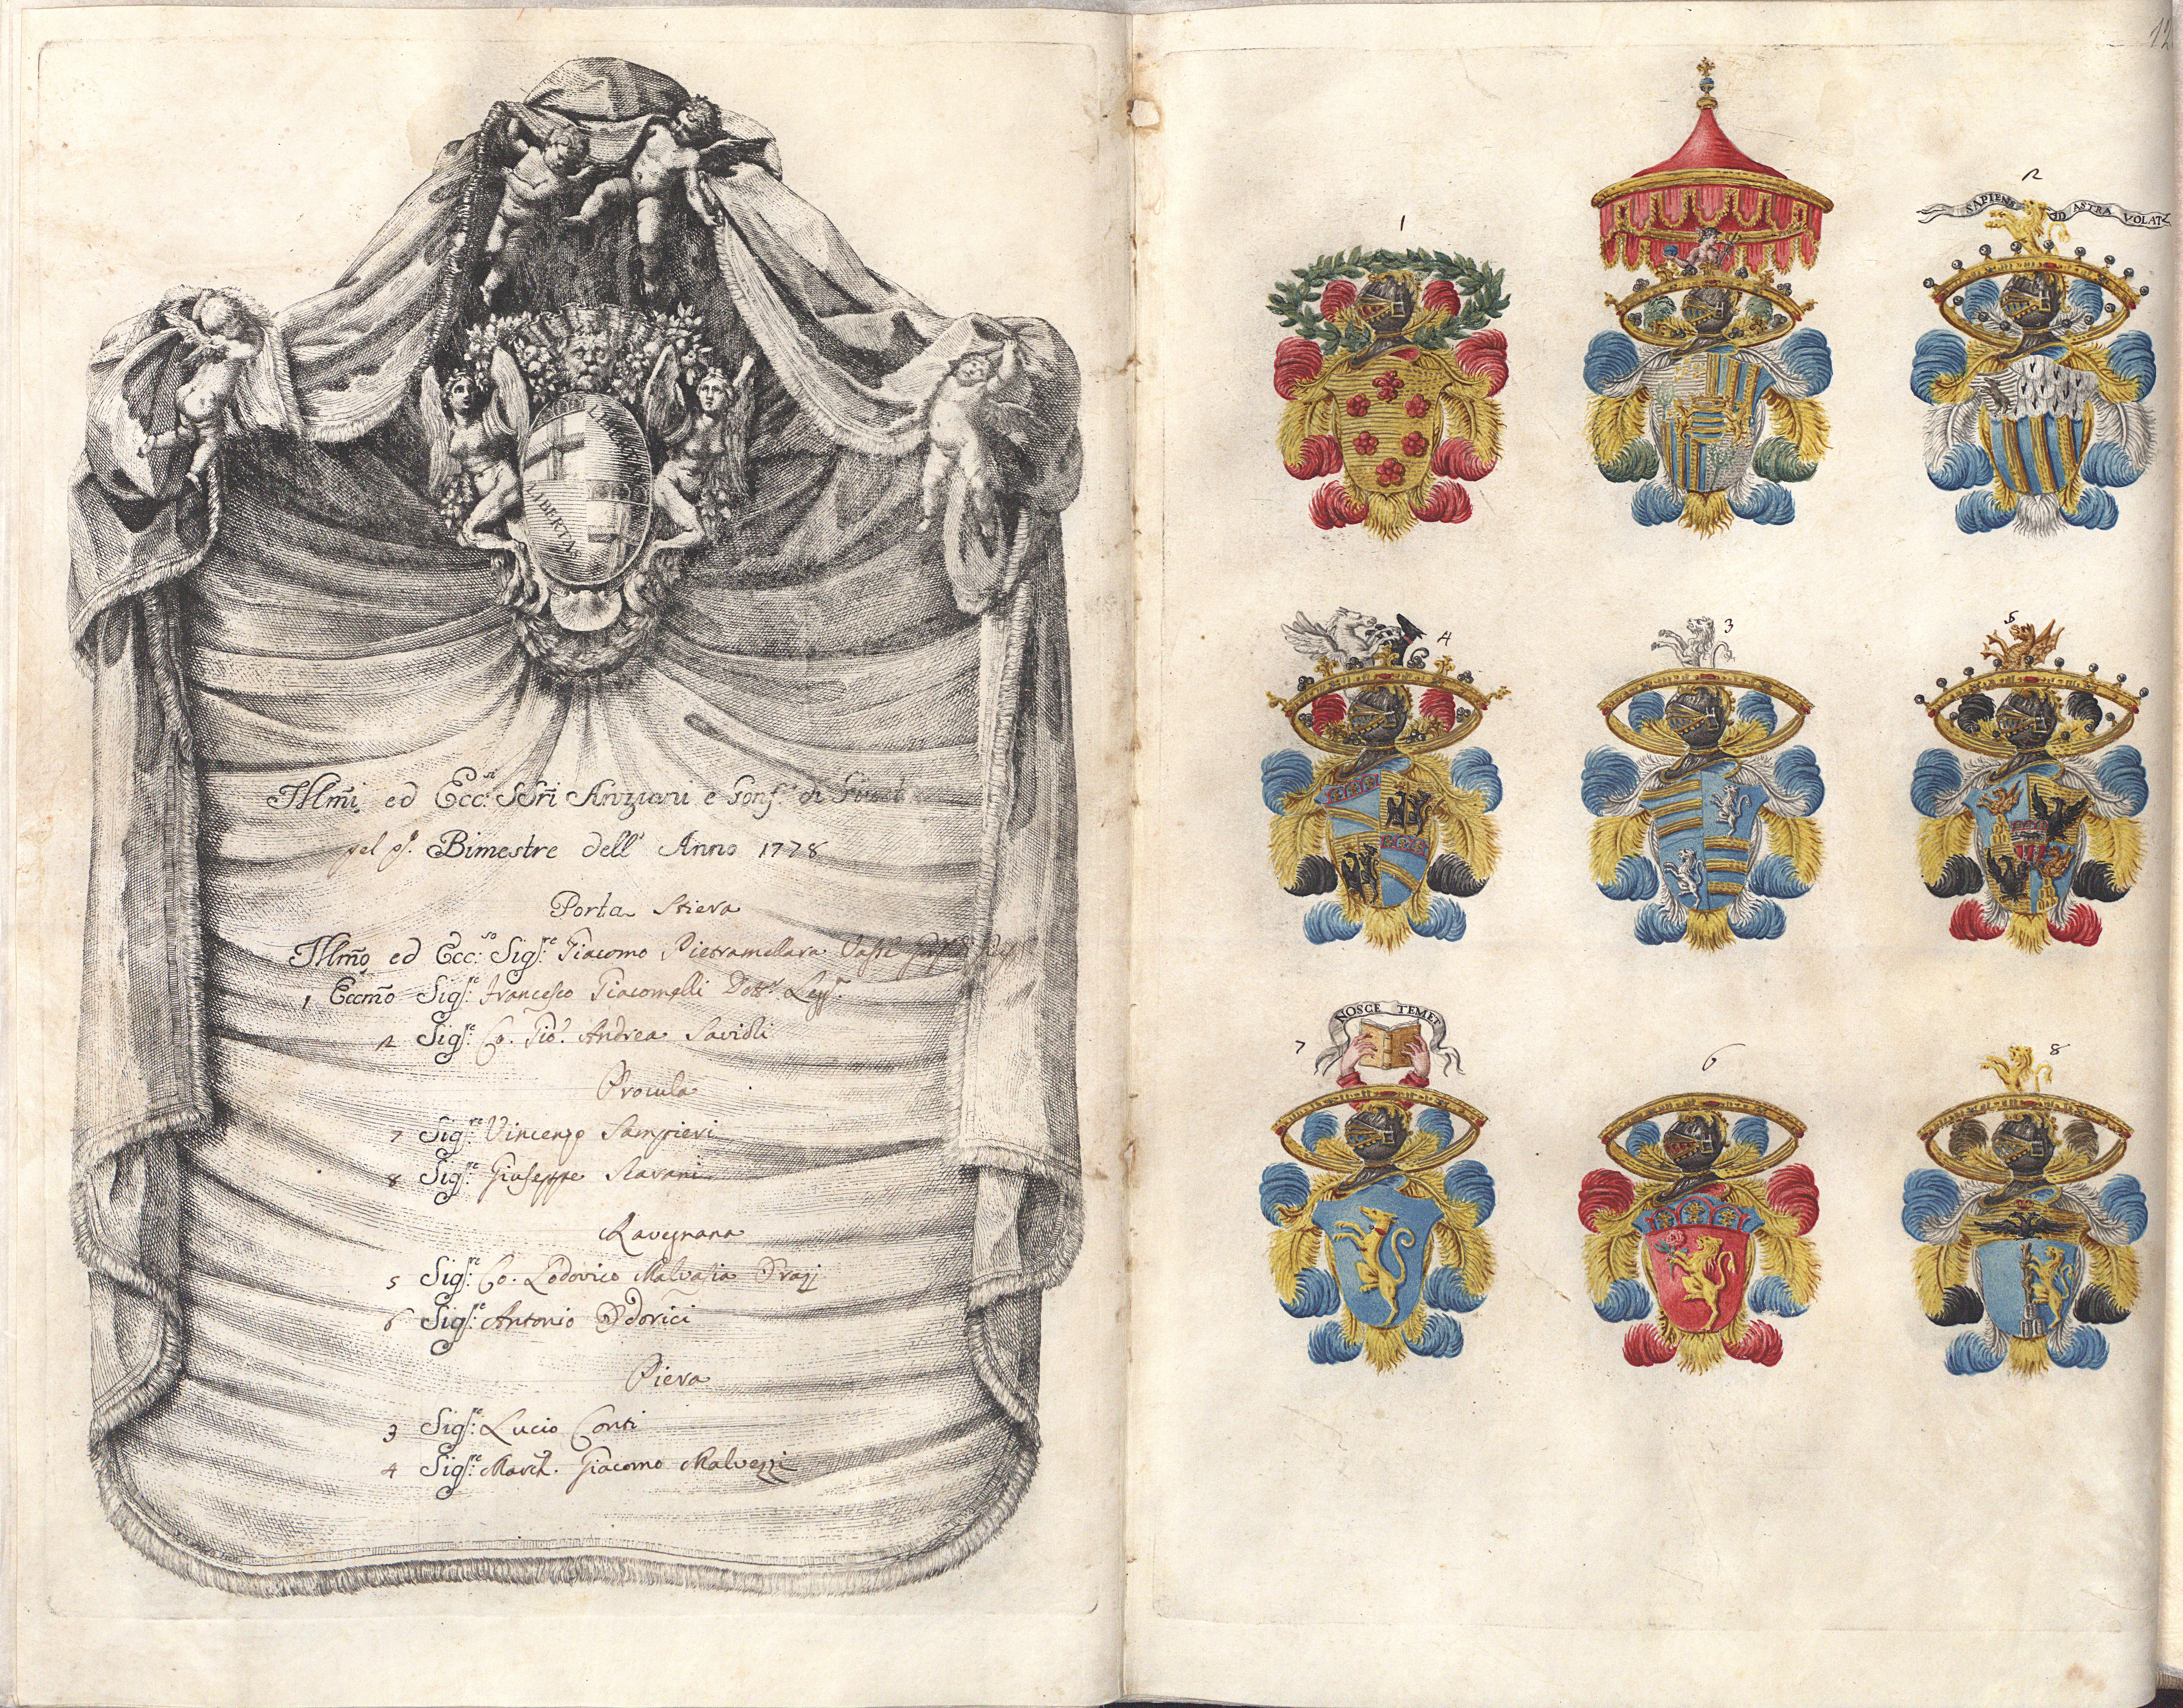 LIBERTAS
LIBERTAS
Illm̃i ed Ecc.si SSri Anziani e Gonf.i di
pel p.o Bimestre dell' Anno 1778
Porta Stiera
Illm̃o ed Ecc:so Sig:re Giacomo Pietramellara Vassè
1 Eccm̃o Sig:re Francesco Giacomelli Dott.r Legg.
2 Sig:re Co. Gio. Andrea Savioli
Procula
7 Sig:re Vincenzo Sampieri
8 Sig:re Giuseppe Scarani
Ravegnana
5 Sig:re Co. Lodovico Malvasia
6 Sig:re Antonio Odorici
Piera
3 Sig:re Lucio Conti
4 Sig:re March. Giacomo Malvezzi
12
1
2
SAPIENS AD ASTRA VOLAT
4
3
5
7
NOSCE TEMET
6
8